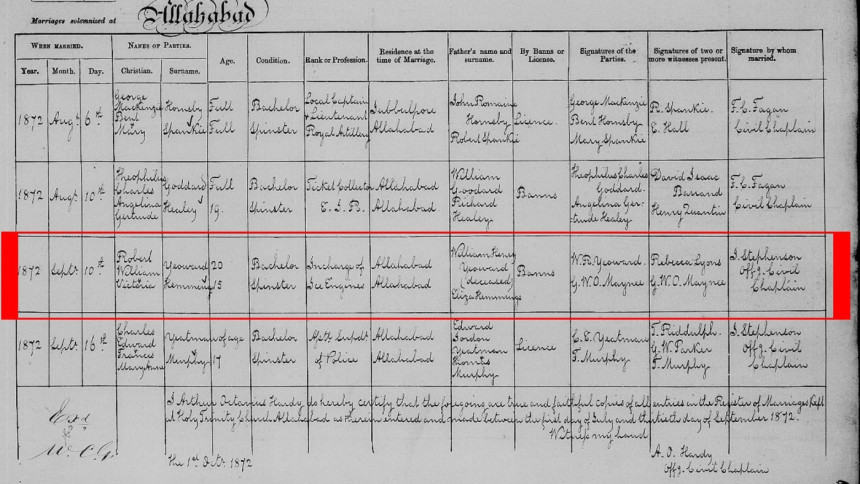 Marriages solemnized at Allahabad
WHEN MARRIED. NAMES OF PARTIES. Age. Condition. Rank or Profession. Residence at the time of Marriage. Father's name and surname. By Banns or License. Signatures of the Parties. Signatures of two or more witnesses present. Signature by whom married.
Year. Month. Day. Christian. Surname.
1872 Augt 6th George Mackenzie Bent Hornsby Full Bachelor Local Captain & Lieutenant Royal Artillery Jubbulpore John Romaine Hornsby Licence. George Mackenzie Bent Hornsby R. Spankie. F. C. Fagan Civil Chaplain
Mary Spankie Full Spinster Allahabad Robert Spankie Mary Spankie E. Hall
1872 Augt 10th Theophilus Charles Goddard Full Bachelor Ticket Collector E. I. R. Allahabad William Goodard Banns Theophilus Charles Goddard. David Isaac Barrand F. C. Fagan Civil Chaplain
Angelina Gertrude Healey 19. Spinster Allahabad Richard Healey. Angelina Gertrude Healey Henry Quantin
1872 Septr 10th Robert William Yeoward 20 Bachelor Incharge of Ice Engines Allahabad William Henry Yeoward (deceased) Banns W. R. Yeoward. Rebecca Lyons J. Stephenson Offg. Civil Chaplain
Victoria Hemming 15 Spinster Allahabad Eliza Hemmings G. W. O. Maynee G. W. O. Maynee
1872 Septr 16th Charles Edward Yeatman of age Bachelor Asstt Supdt of Police Allahabad Edward Gordon Yeatman Licence C. E. Yeatman F. Riddulph. G. W. Parker J. Stephenson Offg. Civil Chaplain
Frances Mary Anne Murphy 17 Spinster Allahabad Thomas Murphy. F. Murphy T. Murphy
I Arthur Octavius Hardy do hereby certify that the foregoing are true and faithful copies of all entries in the Register of Marriages Kept
at Holy Trinity Church Allahabad as therein entered and made between the first day of July and thirtieth day of September 1872.
Witness my hand
A. O. Hardy
Offg. Civil Chaplain
The 1st Octr 1872
Exd
W. C. G.